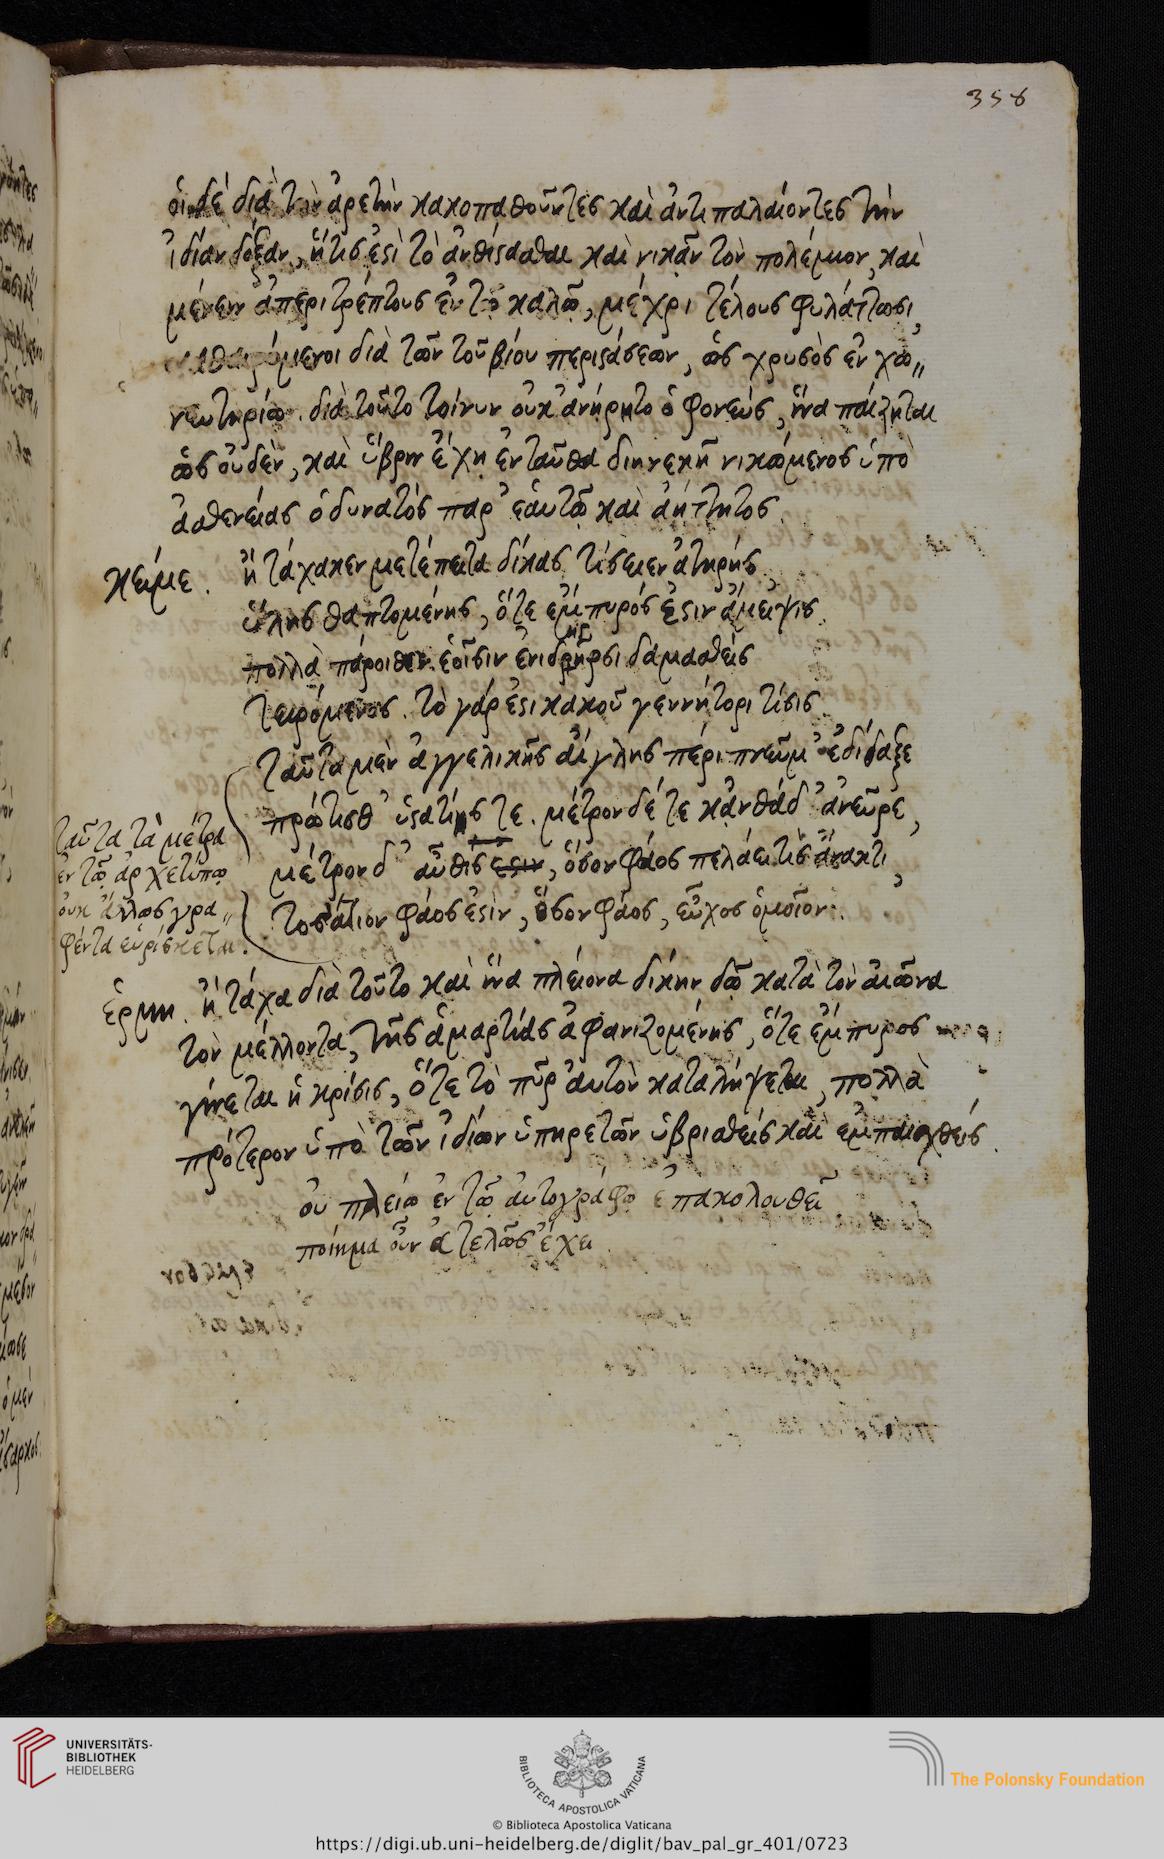 358
οἱ δὲ διὰ τὴν ἀρετὴν κακοπαθοῦντες καὶ ἀντιπαλαίοντες τὴν
ἰδίαν δόξαν, ἥτις ἐστὶ τὸ ἀνθίστασθαι καὶ νικᾶν τὸν πολέμιον, καὶ
μένειν ἀπεριτρέπτους ἐν τῷ καλῷ, μέχρι τέλους φυλάττωσι,
καθαιρόμενοι διὰ τῶν τοῦ βίου περιστάσεων, ὡς χρυσὸς ἐν χω„
νευτηρίῳ. διὰ τοῦτο τοίνυν οὐκ ἀνήρητο ὁ φονεὺς, ἵνα παίζηται
ὡς οὐδὲν, καὶ ὕβριν ἔχῃ ἐνταῦθα διηνεκῆ νικώμενος ὑπὸ
ἀσθενείας ὁ δυνατὸς παρ' ἑαυτῷ καὶ ἀήττητος.
κείμε. ἢ τάχα κεν μετέπειτα δίκας τίσειεν ἀτηρὴς
ὕλης θαπτομένης, ὅτε ἐμπυρός ἐστιν ἄμειψις
πολλὰ πάροιθεν ἑοῖσιν ἐνὶ δμηρσι δαμασθεὶς
τειρόμενος. τὸ γάρ ἐστι κακοῦ γεννήτορι τίσις.
ταῦτα μὲν ἀγγελικῆς αἴγλης πέρι πνεῦμ' ἐδίδαξε
πρώτισθ' ὑστατίης τε. μέτρον δέ τε κἀνθάδ' ἀνεῦρε,
μέτρον δ' αὖθις ἐστιν, ὅσον φάος πελάει τις ἄνακτι,
τοσσάτιον φάος ἐστὶν, ὅσον φάος, εὖχος ὁμοῖον:.
ταῦτα τὰ μέτρα
ἐν τῷ ἀρχετύπῳ
οὐκ ἄλλως γρα„
φέντα εὑρίσκεται.
ἑρμη. ἢ τάχα διὰ τοῦτο καὶ ἵνα πλείονα δίκην δῷ κατὰ τὸν αἰῶνα
τὸν μέλλοντα, τῆς ἁμαρτίας ἀφανιζομένης, ὅτε ἔμπυρος
γίνεται ἡ κρίσις, ὅτε τὸ πῦρ αὐτὸν καταλήψεται, πολλὰ
πρότερον ὑπὸ τῶν ἰδίων ὑπηρετῶν ὑβρισθεὶς καὶ ἐμπαιχθείς.
οὐ πλείω ἐν τῷ αὐτογράφῳ ἐπακολουθεῖ
ποίημα οὖν ἀτελῶς ἔχει.
UNIVERSITÄTS-
BIBLIOTHEK
HEIDELBERG
BIBLIOTECA APOSTOLICA VATICANA
© Biblioteca Apostolica Vaticana
The Polonsky Foundation
https://digi.ub.uni-heidelberg.de/diglit/bav_pal_gr_401/0723